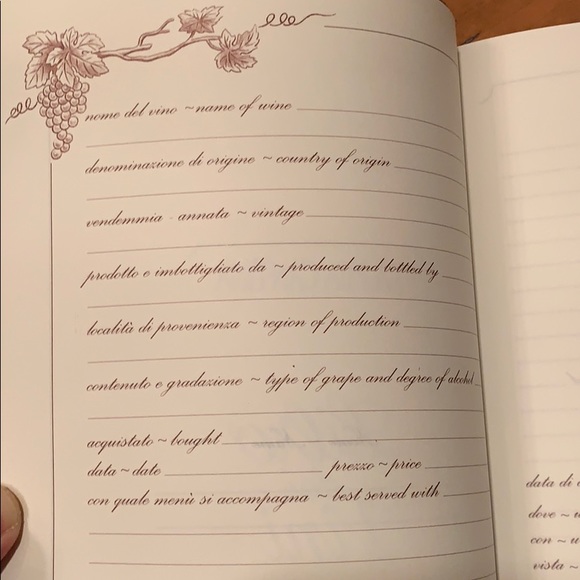 nome del vino ~ name of wine
denominazione di origine ~ country of origin
vendemmia - annata ~ vintage
prodotto e imbottigliato da ~ produced and bottled by
località di provenienza ~ region of production
contenuto e gradazione ~ type of grape and degree of alcohol
acquistato ~ bought
data ~ date prezzo ~ price
con quale menù si accompagna ~ best served with
data di
dove ~
con ~
vista ~